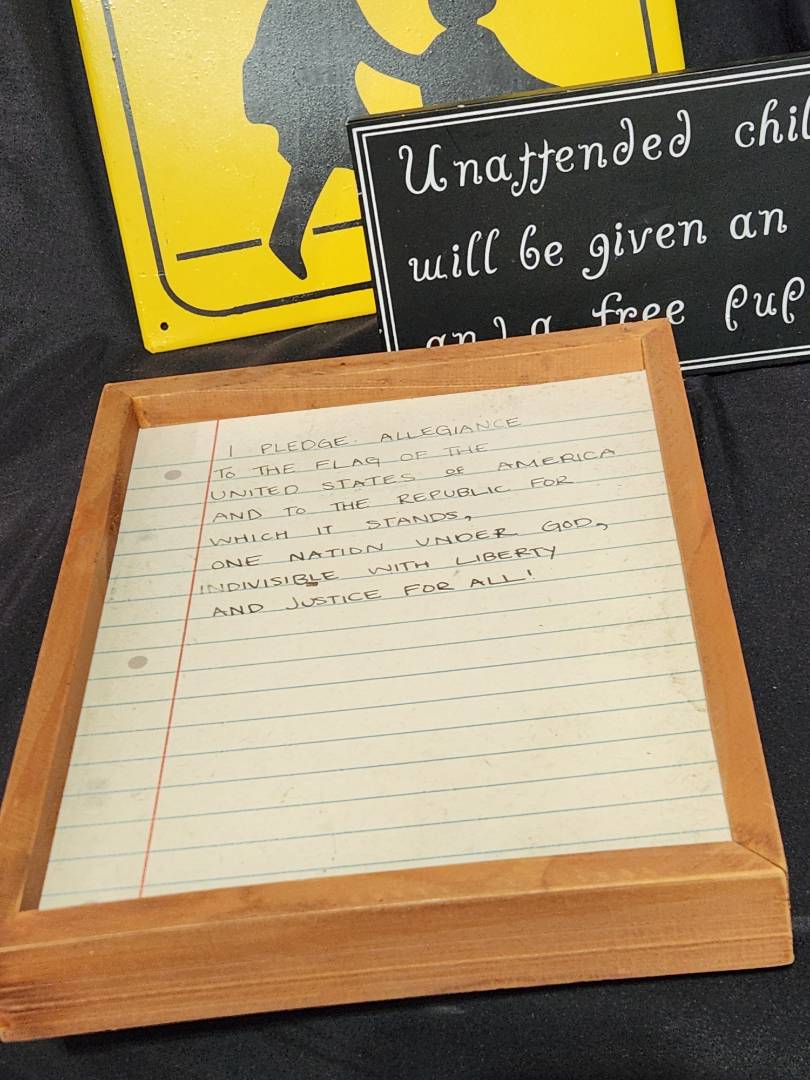 Unattended
will be given an
and a free
I PLEDGE ALLEGIANCE
TO THE FLAG OF THE
UNITED STATES OF AMERICA
AND TO THE REPUBLIC FOR
WHICH IT STANDS,
ONE NATION UNDER GOD,
INDIVISIBLE WITH LIBERTY
AND JUSTICE FOR ALL!